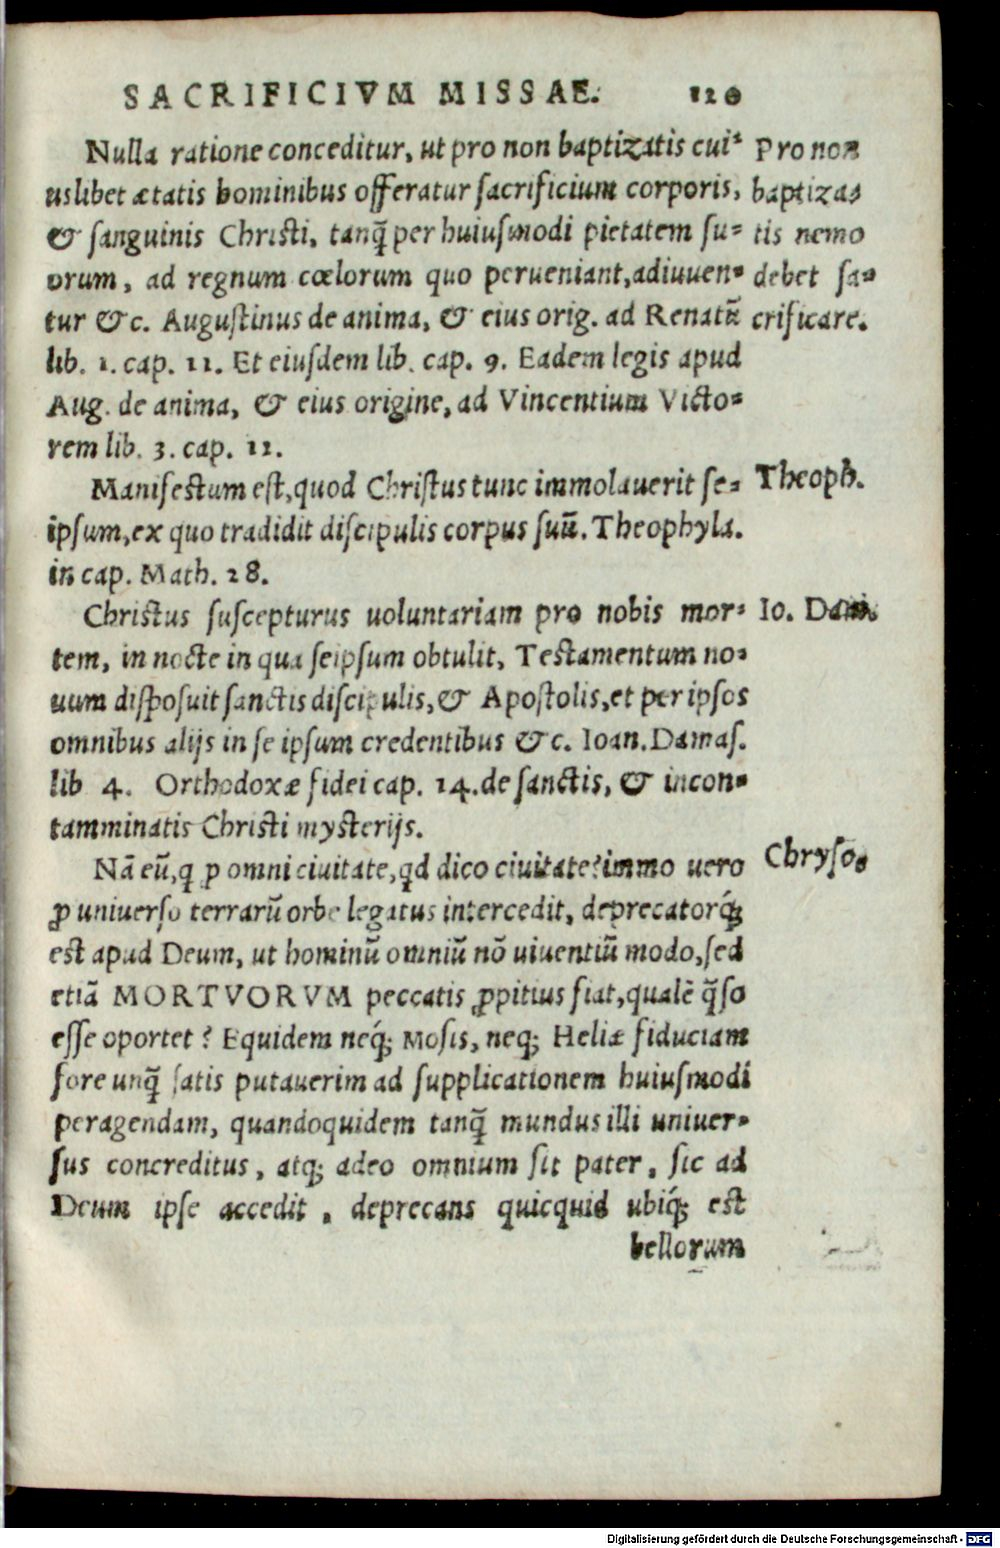 SACRIFICIVM MISSAE. 120
Nulla ratione conceditur, ut pro non baptizatis cui-
uslibet ætatis hominibus offeratur sacrificium corporis,
& sanguinis Christi, tanq̃ per huiusmodi pietatem su-
orum, ad regnum cœlorum quo perueniant, adiuuen-
tur &c. Augustinus de anima, & eius orig. ad Renatũ
lib. 1. cap. 11. Et eiusdem lib. cap. 9. Eadem legis apud
Aug. de anima, & eius origine, ad Vincentium Victo-
rem lib. 3. cap. 12.
Pro non
baptiza-
tis nemo
debet sa-
crificare.
Manifestum est, quod Christus tunc immolauerit se-
ipsum, ex quo tradidit discipulis corpus suũ. Theophyla.
in cap. Math. 28.
Theoph.
Christus suscepturus uoluntariam pro nobis mor-
tem, in nocte in qua seipsum obtulit, Testamentum no-
uum disposuit sanctis discipulis, & Apostolis, et per ipsos
omnibus alijs in se ipsum credentibus &c. Ioan. Damas.
lib 4. Orthodoxæ fidei cap. 14. de sanctis, & incon-
tamminatis Christi mysterijs.
Io. Dam.
Nã eũ, q̃ ꝓ omni ciuitate, qd dico ciuitate? immo uero
ꝓ uniuerso terrarũ orbe legatus intercedit, deprecatorq́;
est apud Deum, ut hominũ omniũ nõ uiuentiũ modo, sed
etiã MORTVORVM peccatis ꝓpitius fiat, qualẽ q̃so
esse oportet? Equidem neq́; Mosis, neq; Heliæ fiduciam
fore unq̃ satis putauerim ad supplicationem huiusmodi
peragendam, quandoquidem tanq̃ mundus illi uniuer-
sus concreditus, atq; adeo omnium sit pater, sic ad
Deum ipse accedit, deprecans quicquid ubiq́; est
bellorum
Chryso.
Digitalisierung gefördert durch die Deutsche Forschungsgemeinschaft - DFG